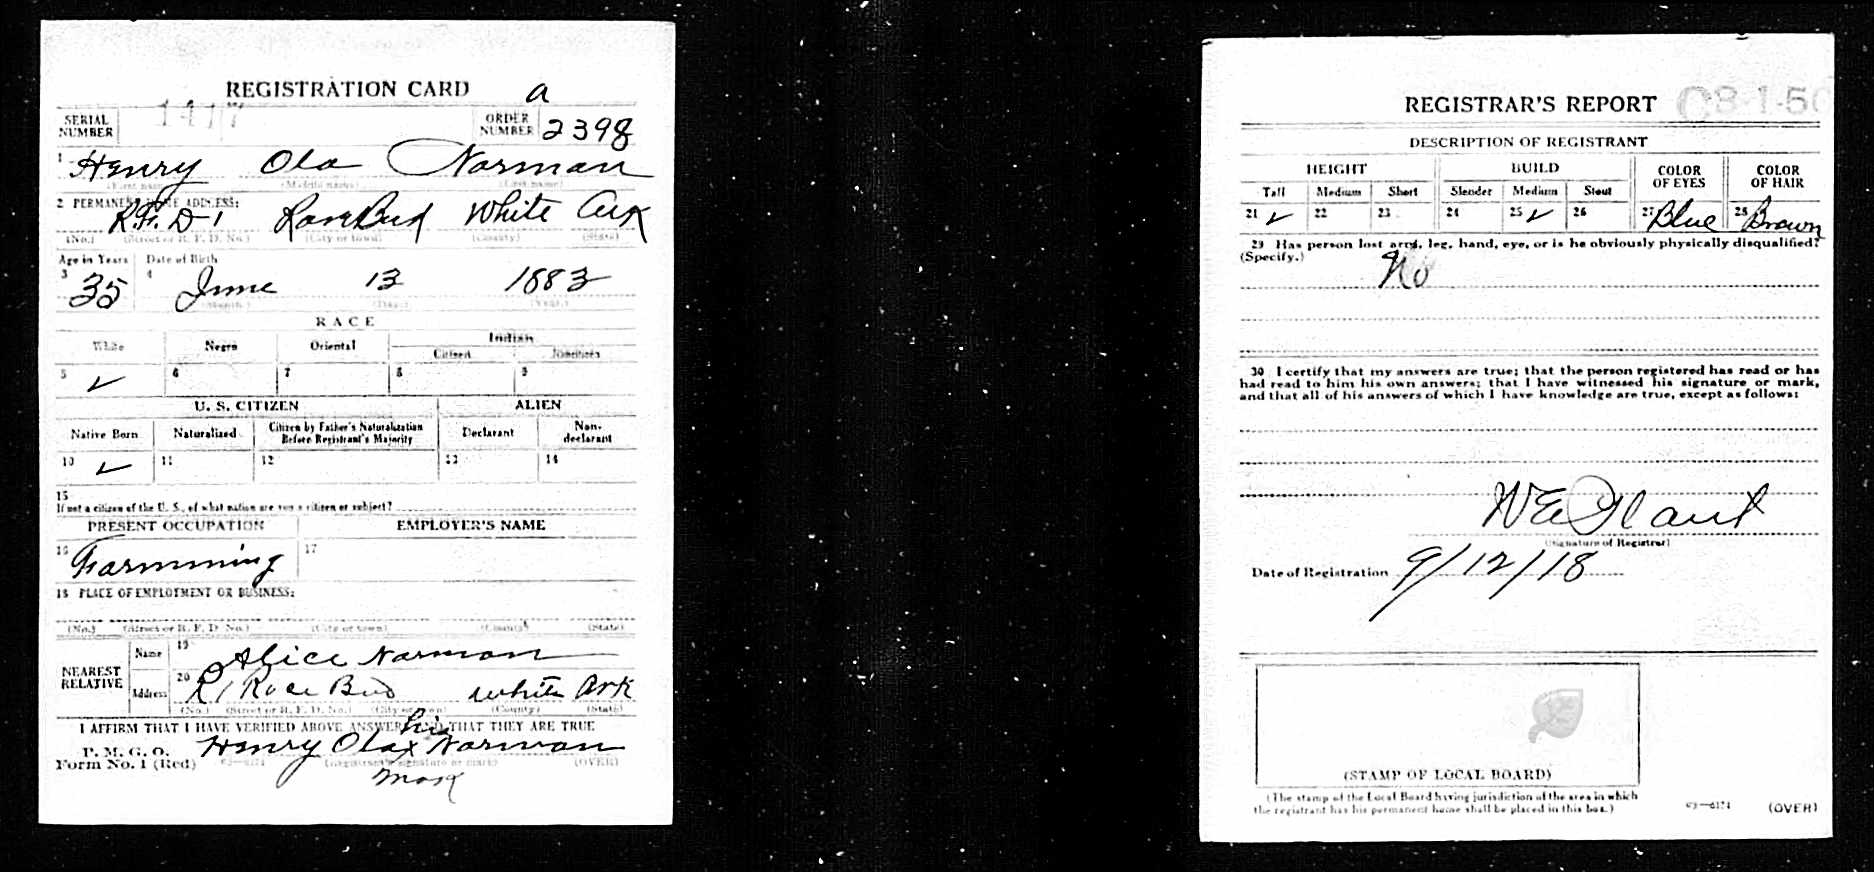 REGISTRATION CARD
a
SERIAL NUMBER 1417 ORDER NUMBER 2398
1 Henry Ola Norman
(First name) (Middle name) (Last name)
2 PERMANENT HOME ADDRESS:
R.F.D 1 RoseBud White Ark
(No.) (Street or R. F. D. No.) (City or town) (County) (State)
Age in Years Date of Birth
3 35 4 June 13 1883
(Month.) (Day.) (Year.)
RACE
White Negro Oriental Indian
Citizen Noncitizen
5 ✓ 6 7 8 9
U. S. CITIZEN ALIEN
Native Born Naturalized Citizen by Father's Naturalization Before Registrant's Majority Declarant Non-declarant
10 ✓ 11 12 13 14
15
If not a citizen of the U. S., of what nation are you a citizen or subject?
PRESENT OCCUPATION EMPLOYER'S NAME
16 Farmming 17
18 PLACE OF EMPLOYMENT OR BUSINESS:
(No.) (Street or R. F. D. No.) (City or town) (County) (State)
NEAREST RELATIVE Name 19 Alice Norman
Address 20 R1 Rose Bud White Ark
(No.) (Street or R. F. D. No.) (City or town) (County) (State)
I AFFIRM THAT I HAVE VERIFIED ABOVE ANSWERS AND THAT THEY ARE TRUE
his
P. M. G. O. Henry Ola x Norman
Form No. 1 (Red) 03—6171 (Registrant's signature or mark) (OVER)
mark
REGISTRAR'S REPORT
DESCRIPTION OF REGISTRANT
HEIGHT BUILD COLOR OF EYES COLOR OF HAIR
Tall Medium Short Slender Medium Stout
21 ✓ 22 23 24 25 ✓ 26 27 Blue 28 Brown
29 Has person lost arm, leg, hand, eye, or is he obviously physically disqualified?
(Specify.) No
30 I certify that my answers are true; that the person registered has read or has
had read to him his own answers; that I have witnessed his signature or mark,
and that all of his answers of which I have knowledge are true, except as follows:
(Signature of Registrar)
Date of Registration 9/12/18
(STAMP OF LOCAL BOARD)
(The stamp of the Local Board having jurisdiction of the area in which
the registrant has his permanent home shall be placed in this box.)
03—6171 (OVER)